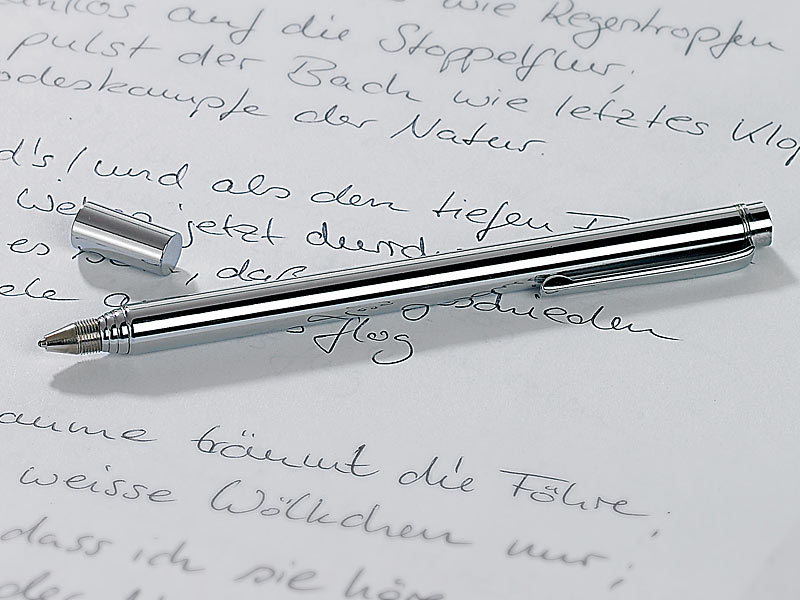 auf die wie Regentropfen
pulst der Bach Stoppelflur;
wie letztes Klop
odeskampfe der Natur.
d's! und als den tiefen
jetzt durch
es daß
geschieden
flog
aume träumt die Föhre,
weisse Wölkchen nur;
dass ich sie höre
der